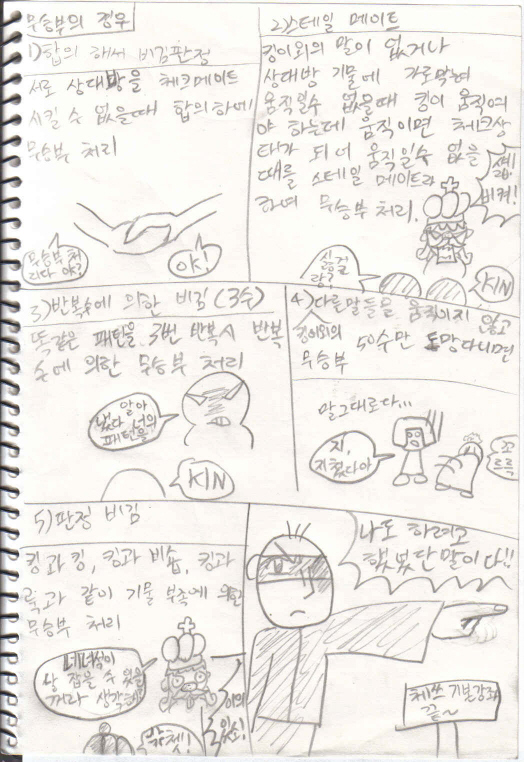 무승부의 경우
1) 합의 해서 비김판정
서로 상대방을 체크메이트
시킬 수 없을때 합의하에
무승부 처리
무승부 처
리다 야!
OK!
2) 스테일 메이트
킹이외의 말이 없거나
상대방 기물에 가로막혀
움직일수 없을때 킹이 움직여
야 하는데 움직이면 체크상
태가 되어 움직일수 없을
때를 스테일 메이트라
하여 무승부 처리.
비켜!
싫은걸
랑?
KIN
3) 반복수에 의한 비김 (3수)
똑같은 패턴을 3번 반복시 반복
수에 의한 무승부 처리
알아
냈다 너의
패턴을
KIN
4) 다른말들을 움직이지 않고
킹이외의
50수만 도망다니면
무승부
말그대로다...
지,
지쳤다아
꼬
르륵
5) 판정 비김
킹과 킹, 킹과 비숍, 킹과
룩과 같이 기물 부족에 의한
무승부 처리
네녀석이
날 잡을 수 있을
꺼라 생각해?
나도 하려고
했었단 말이다!!
체쓰 기본강좌
끝~